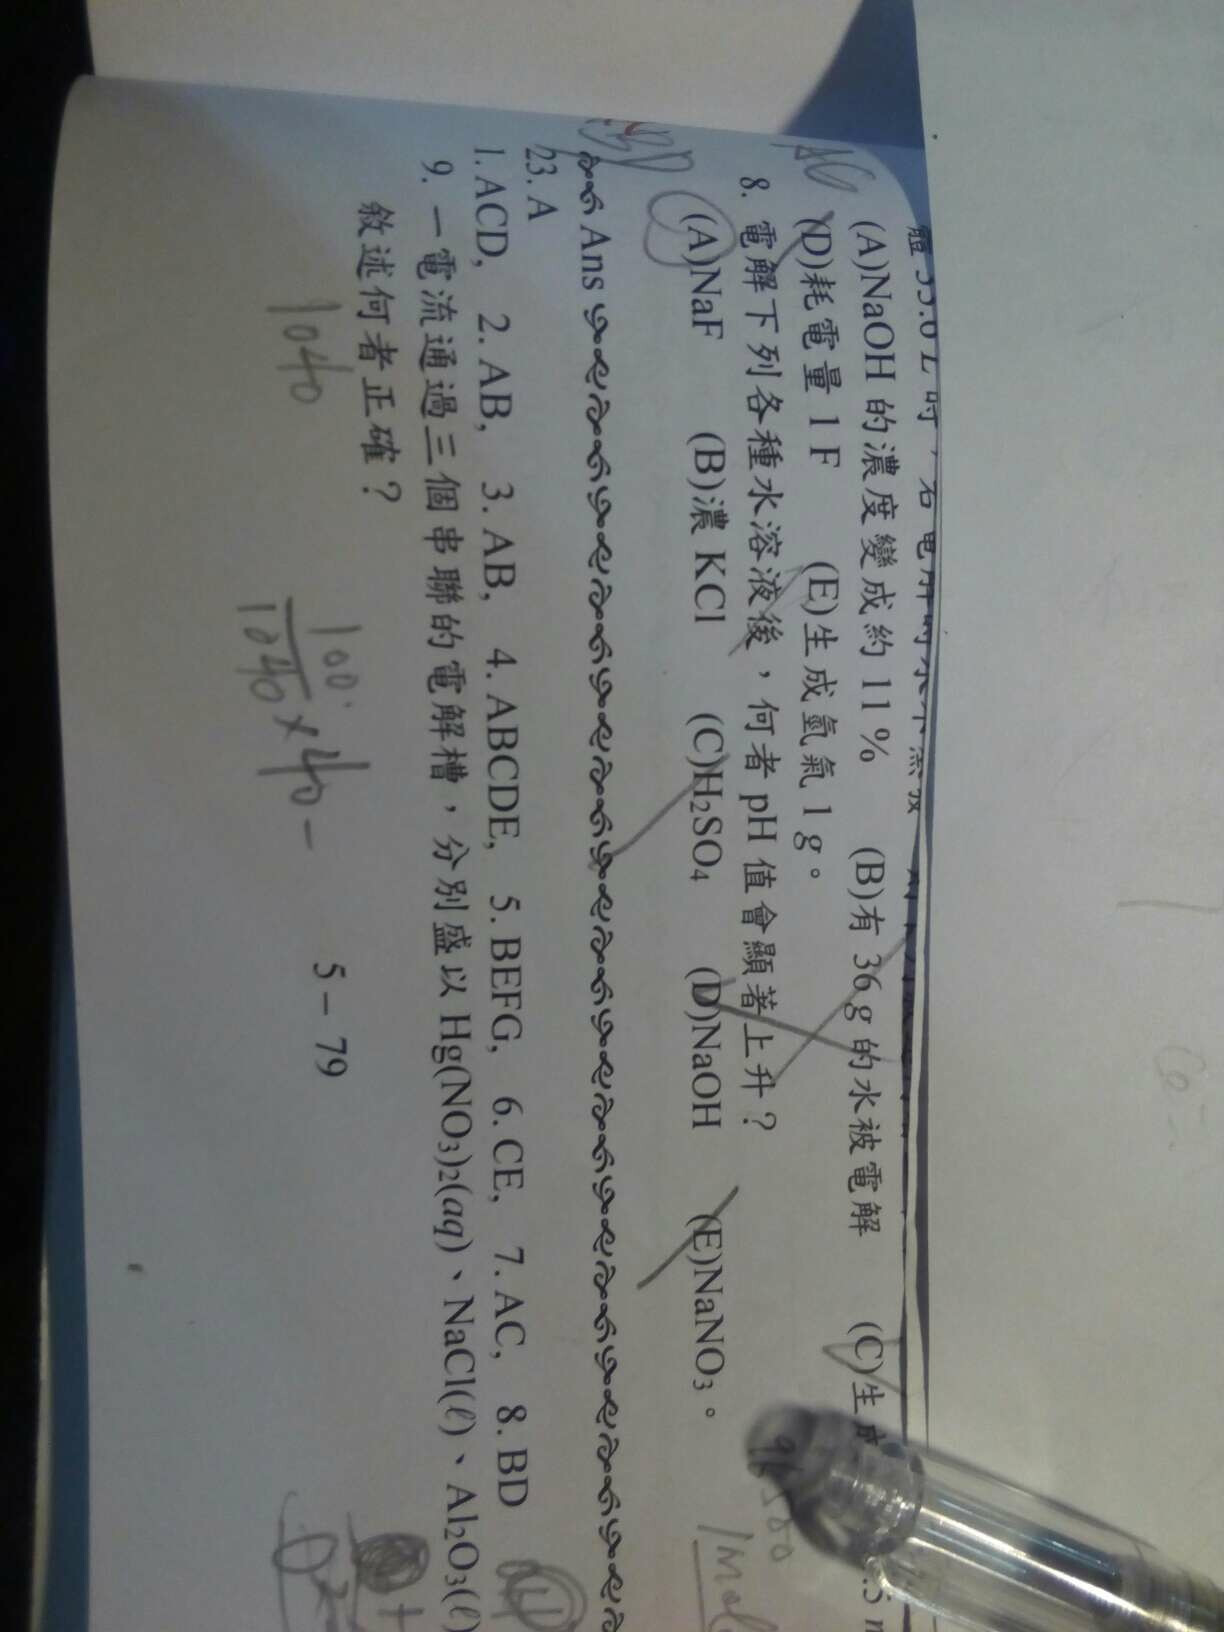 (A)NaOH 的濃度變成約 11% (B)有 36 g 的水被電解 (C)生成
(D)耗電量 1 F (E)生成氫氣 1 g。
8. 電解下列各種水溶液後，何者 pH 值會顯著上升？
(A)NaF (B)濃 KCl (C)H₂SO₄ (D)NaOH (E)NaNO₃。
BD
Ans
23. A
1. ACD, 2. AB, 3. AB, 4. ABCDE, 5. BEFG, 6. CE, 7. AC, 8. BD
9. 一電流通過三個串聯的電解槽，分別盛以 Hg(NO₃)₂(aq)、NaCl(ℓ)、Al₂O₃(ℓ)
敘述何者正確？
1040
100
1040 × 40 -
5 – 79
1 mol